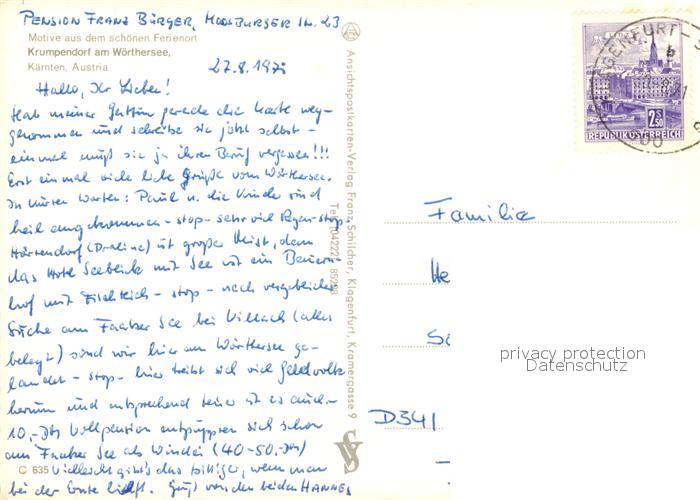 PENSION FRANZ BÜRGER, MOOSBURGER STR. 23
Motive aus dem schönen Ferienort
Krumpendorf am Wörthersee,
Kärnten, Austria
27.8.197
Hallo, Ihr Lieben!
Hab meiner Gattin gerade die Karte weg-
genommen und schreibe sie jetzt selbst -
einmal muß sie ja ihren Beruf vergessen!!!
Erst einmal viele liebe Grüße vom Wörthersee.
In kurzen Worten: Paul u. die Kinder sind
heil angekommen - stop - sehr viel Regen - stop -
(Draline) ist großer Mist, denn
das Hotel Seeblick mit See ist ein Bauern-
hof mit Fischteich - stop - nach vergeblicher
Suche am Faaker See bei Villach (alles
belegt) sind wir hier am Wörthersee ge-
landet - stop - hier treibt sich viel Geldvolk
herum und entsprechend teuer ist es auch -
10,- Vollpension entpuppen sich schon
am Faaker See als Windei (40-50,-DM)
Vielleicht gibt's das billiger, wenn man
bei der Ernte hilft. Gruß von den beiden HANNES
C 635
Ansichtspostkarten-Verlag Franz Schilcher, Klagenfurt, Kramergasse 9
Tel. (04222) 85298
KLAGENFURT
b
LINZ
2.50
S
REPUBLIK ÖSTERREICH
Familie
He
Sc
D341
privacy protection
Datenschutz